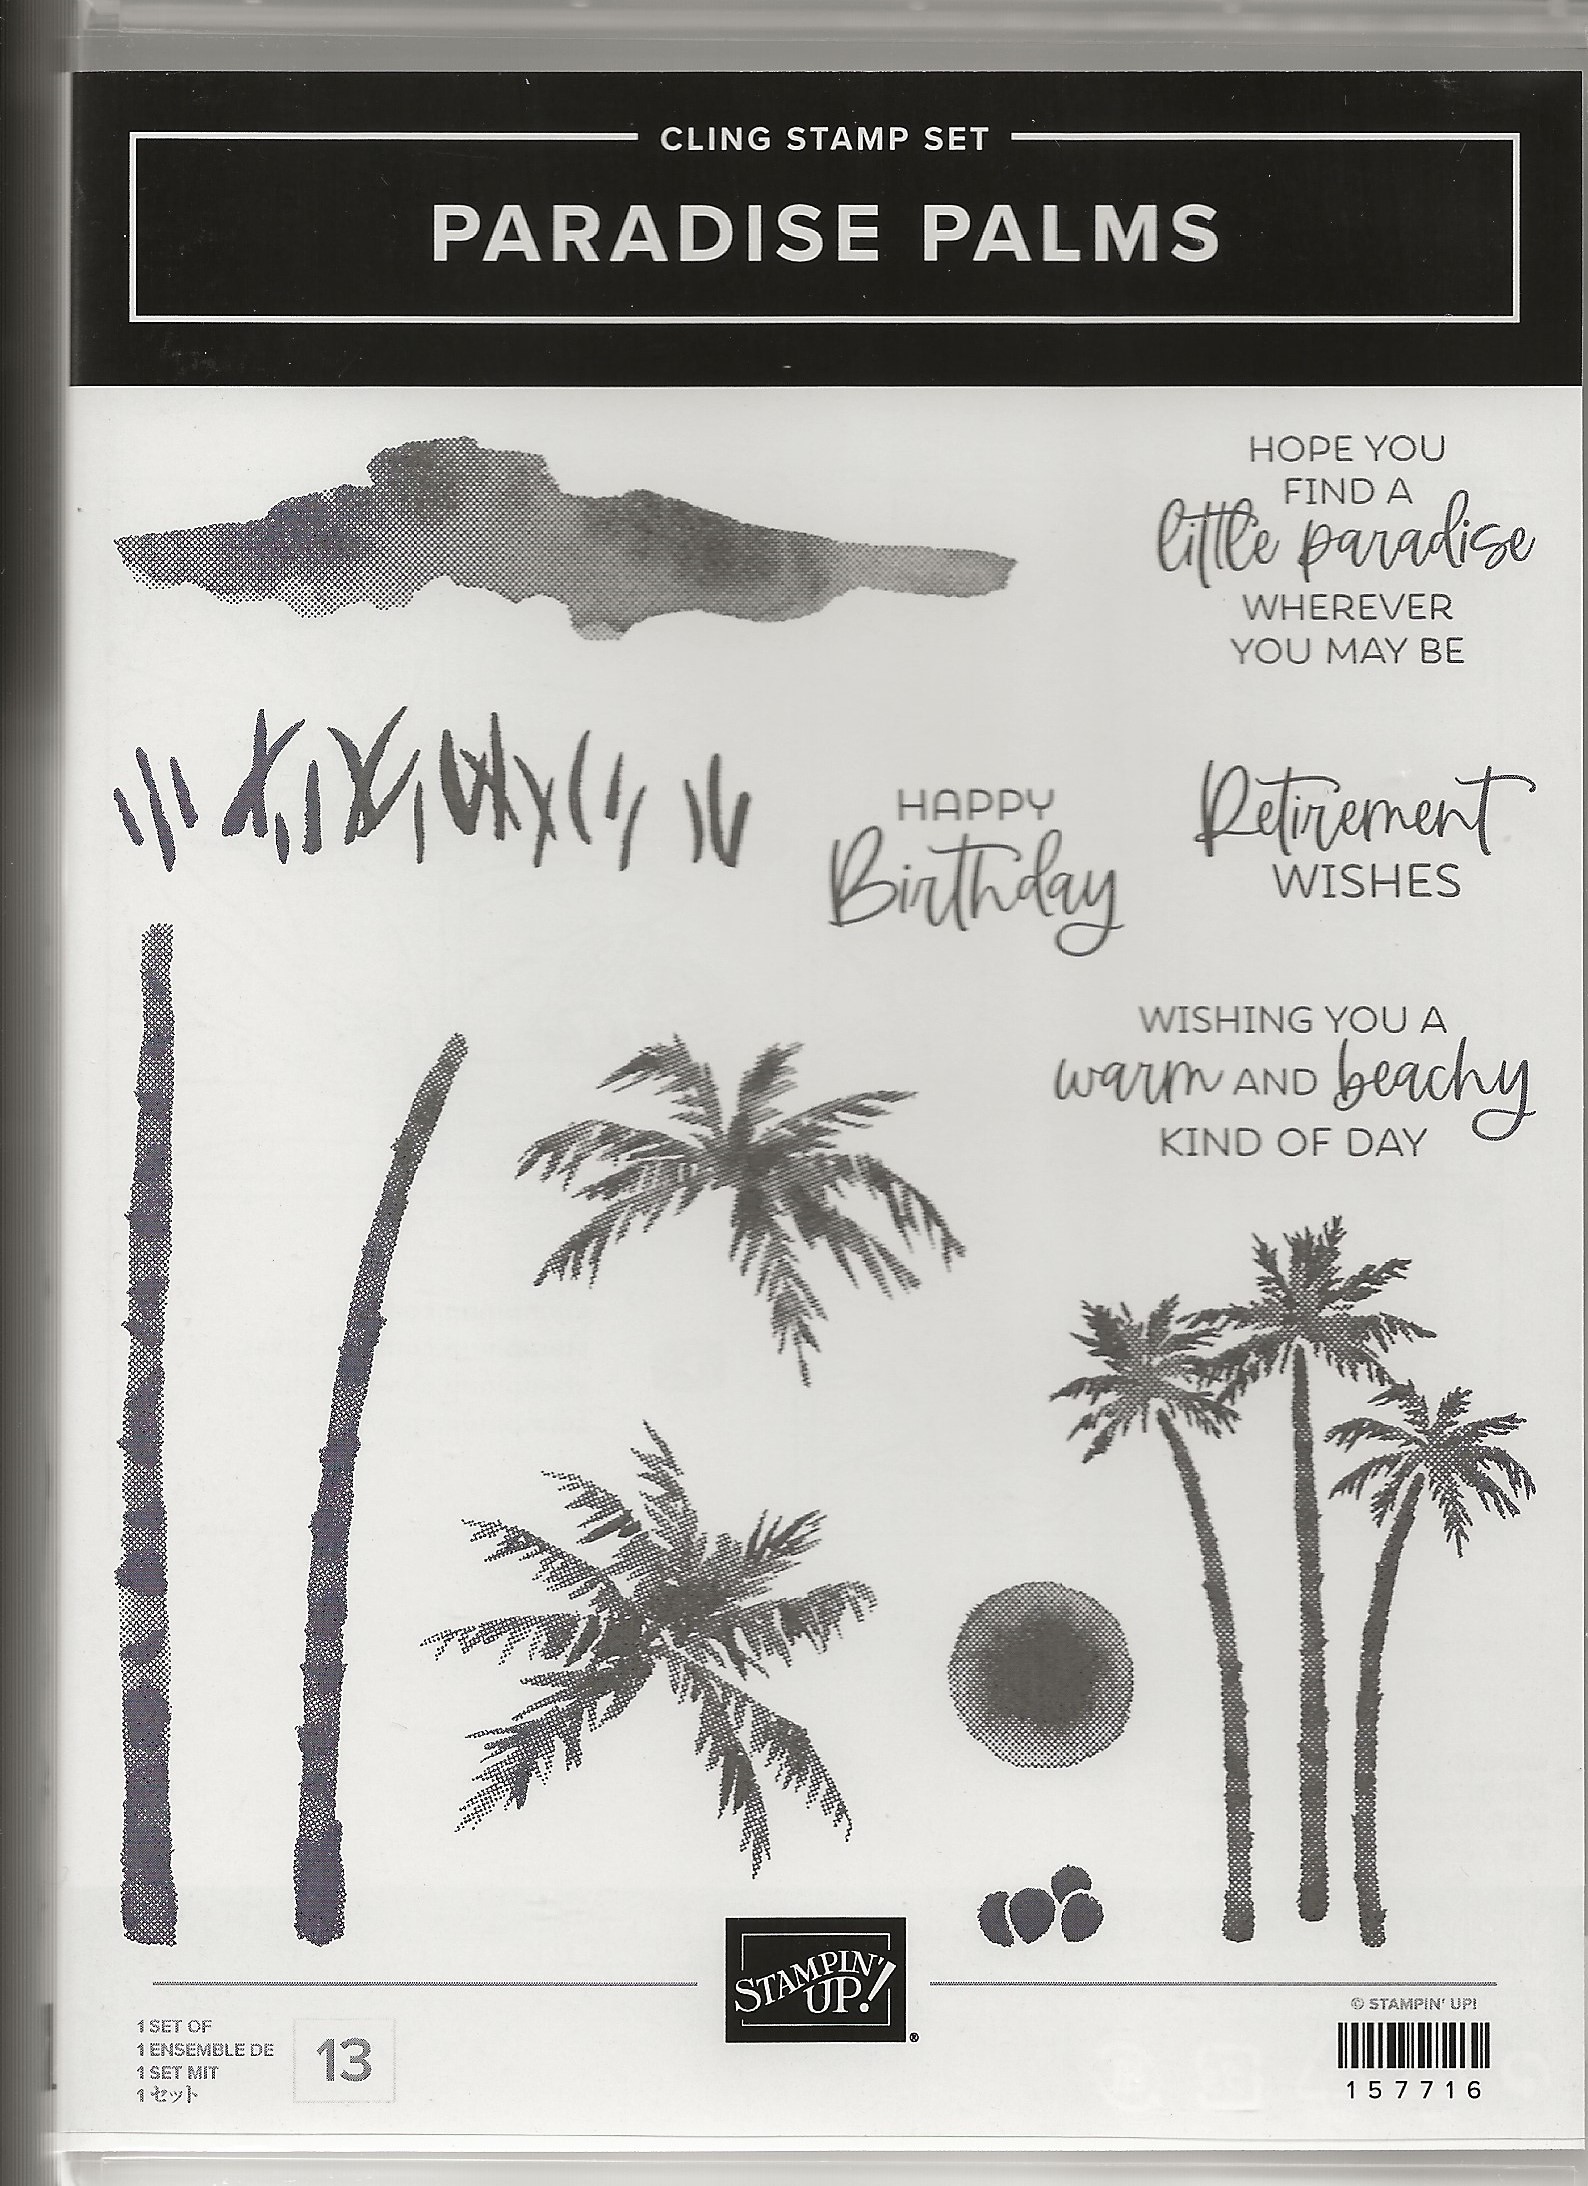 CLING STAMP SET
PARADISE PALMS
HOPE YOU
FIND A
little paradise
WHEREVER
YOU MAY BE
HAPPY
Birthday
Retirement
WISHES
WISHING YOU A
warm AND beachy
KIND OF DAY
STAMPIN'
UP!
®
1 SET OF
1 ENSEMBLE DE
1 SET MIT
1 セット
13
© STAMPIN' UP!
157716